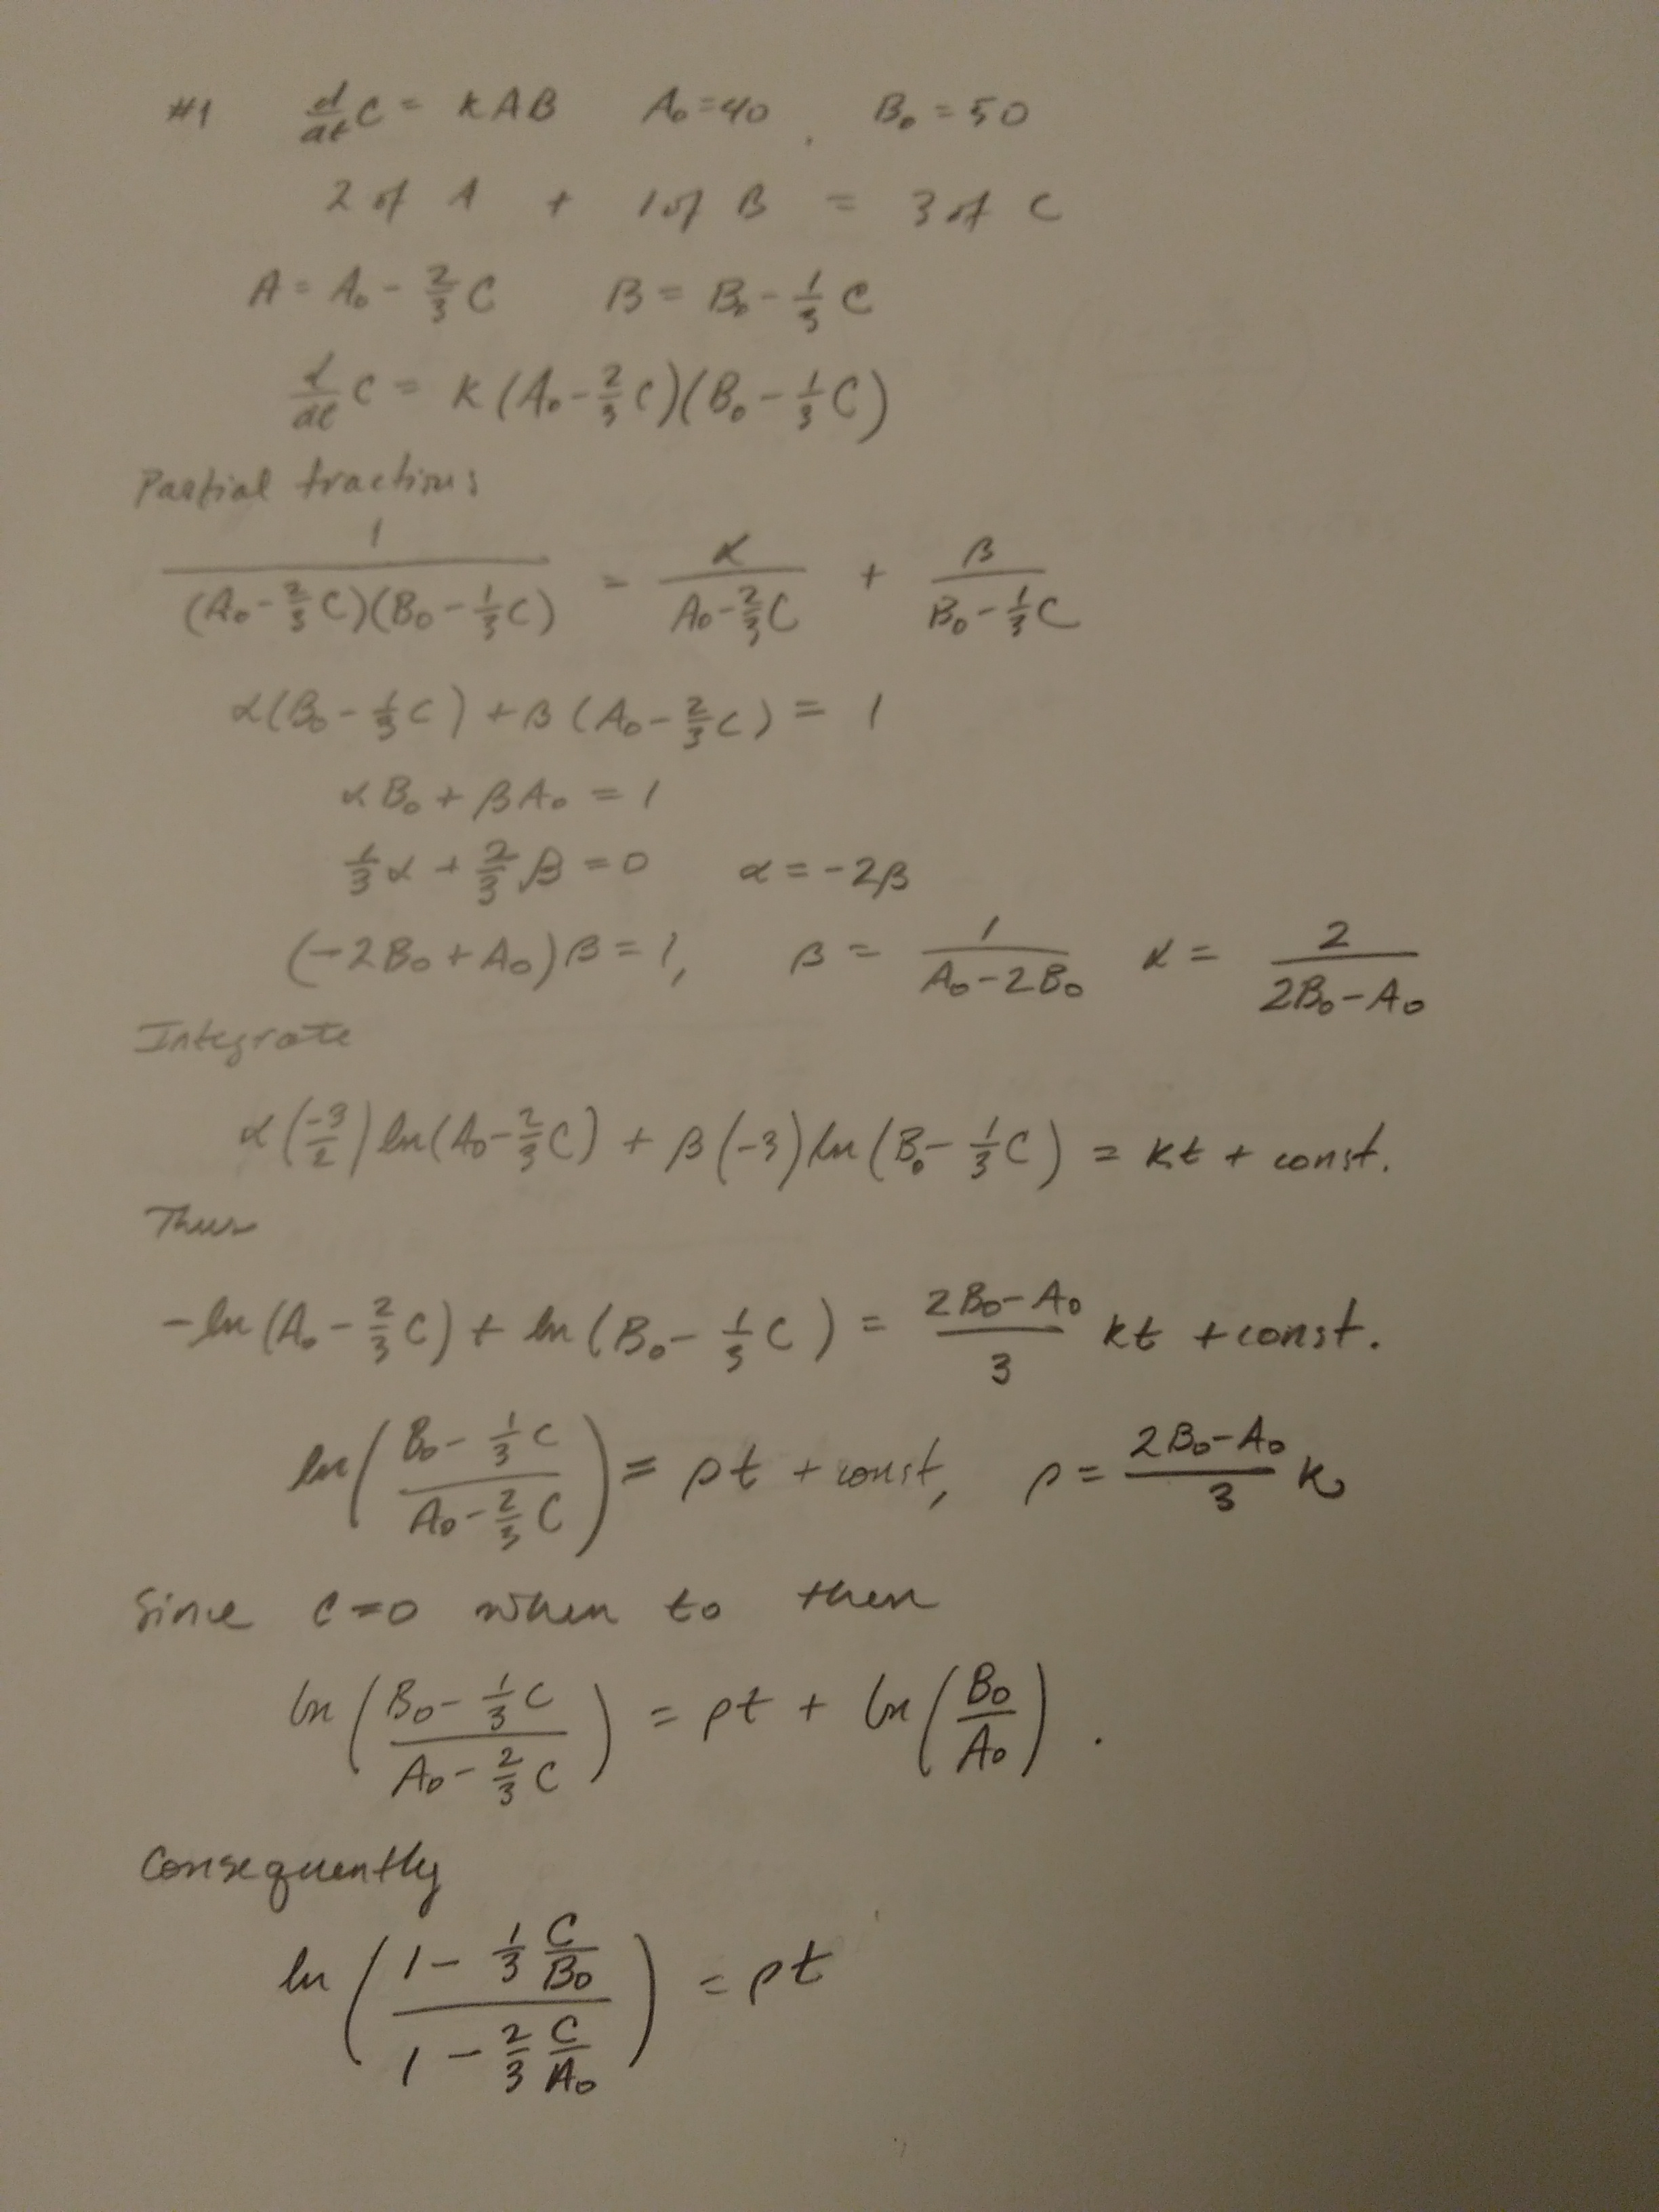 #1 d/dt C = KAB A₀=40, B₀=50
2 of A + 1 of B = 3 of C
A = A₀ - 2/3 C B = B₀ - 1/3 C
d/dt C = K(A₀ - 2/3 C)(B₀ - 1/3 C)
Partial fractions
1/((A₀ - 2/3 C)(B₀ - 1/3 C)) = α/(A₀ - 2/3 C) + β/(B₀ - 1/3 C)
α(B₀ - 1/3 C) + β(A₀ - 2/3 C) = 1
αB₀ + βA₀ = 1
1/3 α + 2/3 β = 0 α = -2β
(-2B₀ + A₀)β = 1, β = 1/(A₀ - 2B₀) α = 2/(2B₀ - A₀)
Integrate
α(-3/2) ln(A₀ - 2/3 C) + β(-3) ln(B₀ - 1/3 C) = kt + const.
Thus
-ln(A₀ - 2/3 C) + ln(B₀ - 1/3 C) = (2B₀ - A₀)/3 kt + const.
ln((B₀ - 1/3 C)/(A₀ - 2/3 C)) = ρt + const, ρ = (2B₀ - A₀)/3 k
Since C=0 when to then
ln((B₀ - 1/3 C)/(A₀ - 2/3 C)) = ρt + ln(B₀/A₀).
Consequently
ln((1 - 1/3 C/B₀)/(1 - 2/3 C/A₀)) = ρt